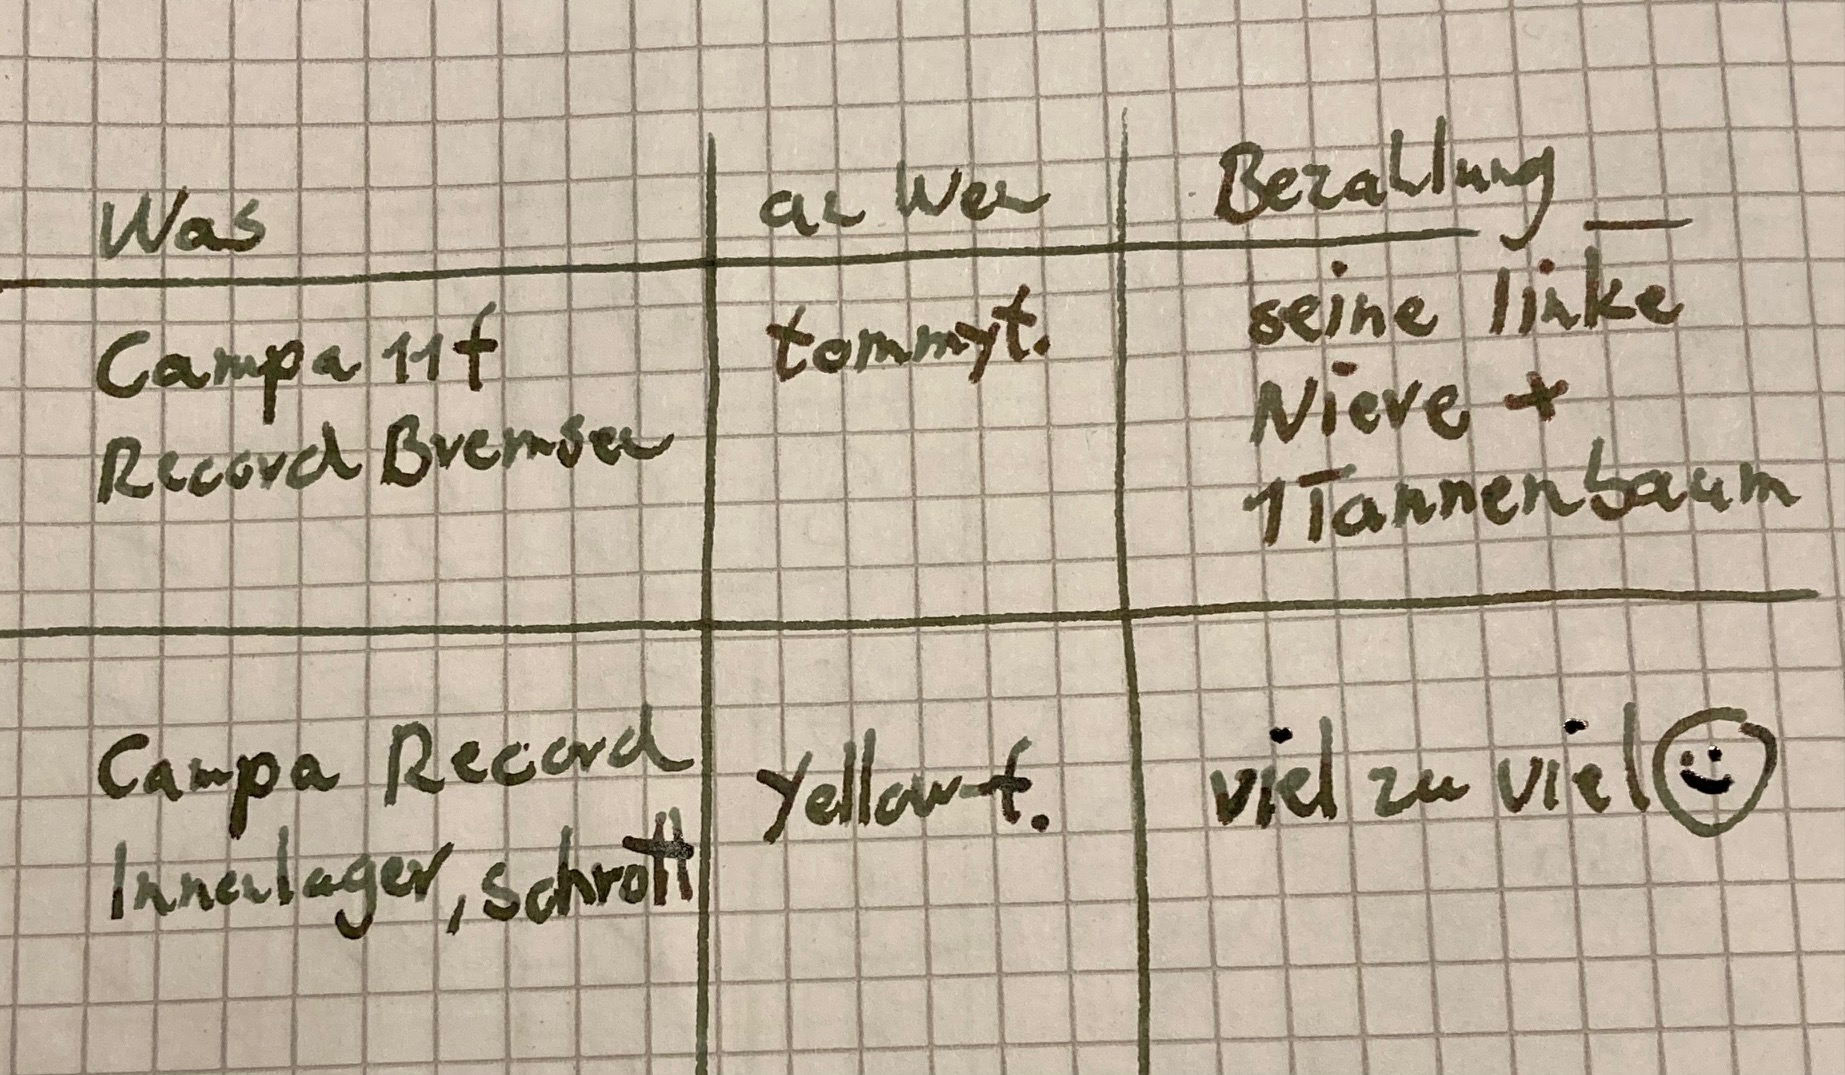 Was an Wen Bezahlung
Campa 11f tommyt. seine linke
Record Bremsen Niere +
1 Tannenbaum
Campa Record Yellow-t. viel zu viel
Innenlager, schrott